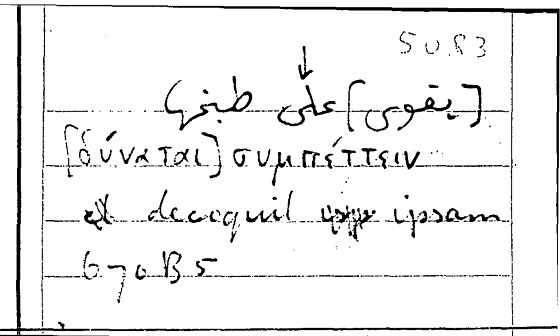 50.83
[يقوى] على طبخها
[δύναται] συμπέττειν
decoquit ipsam
670B5